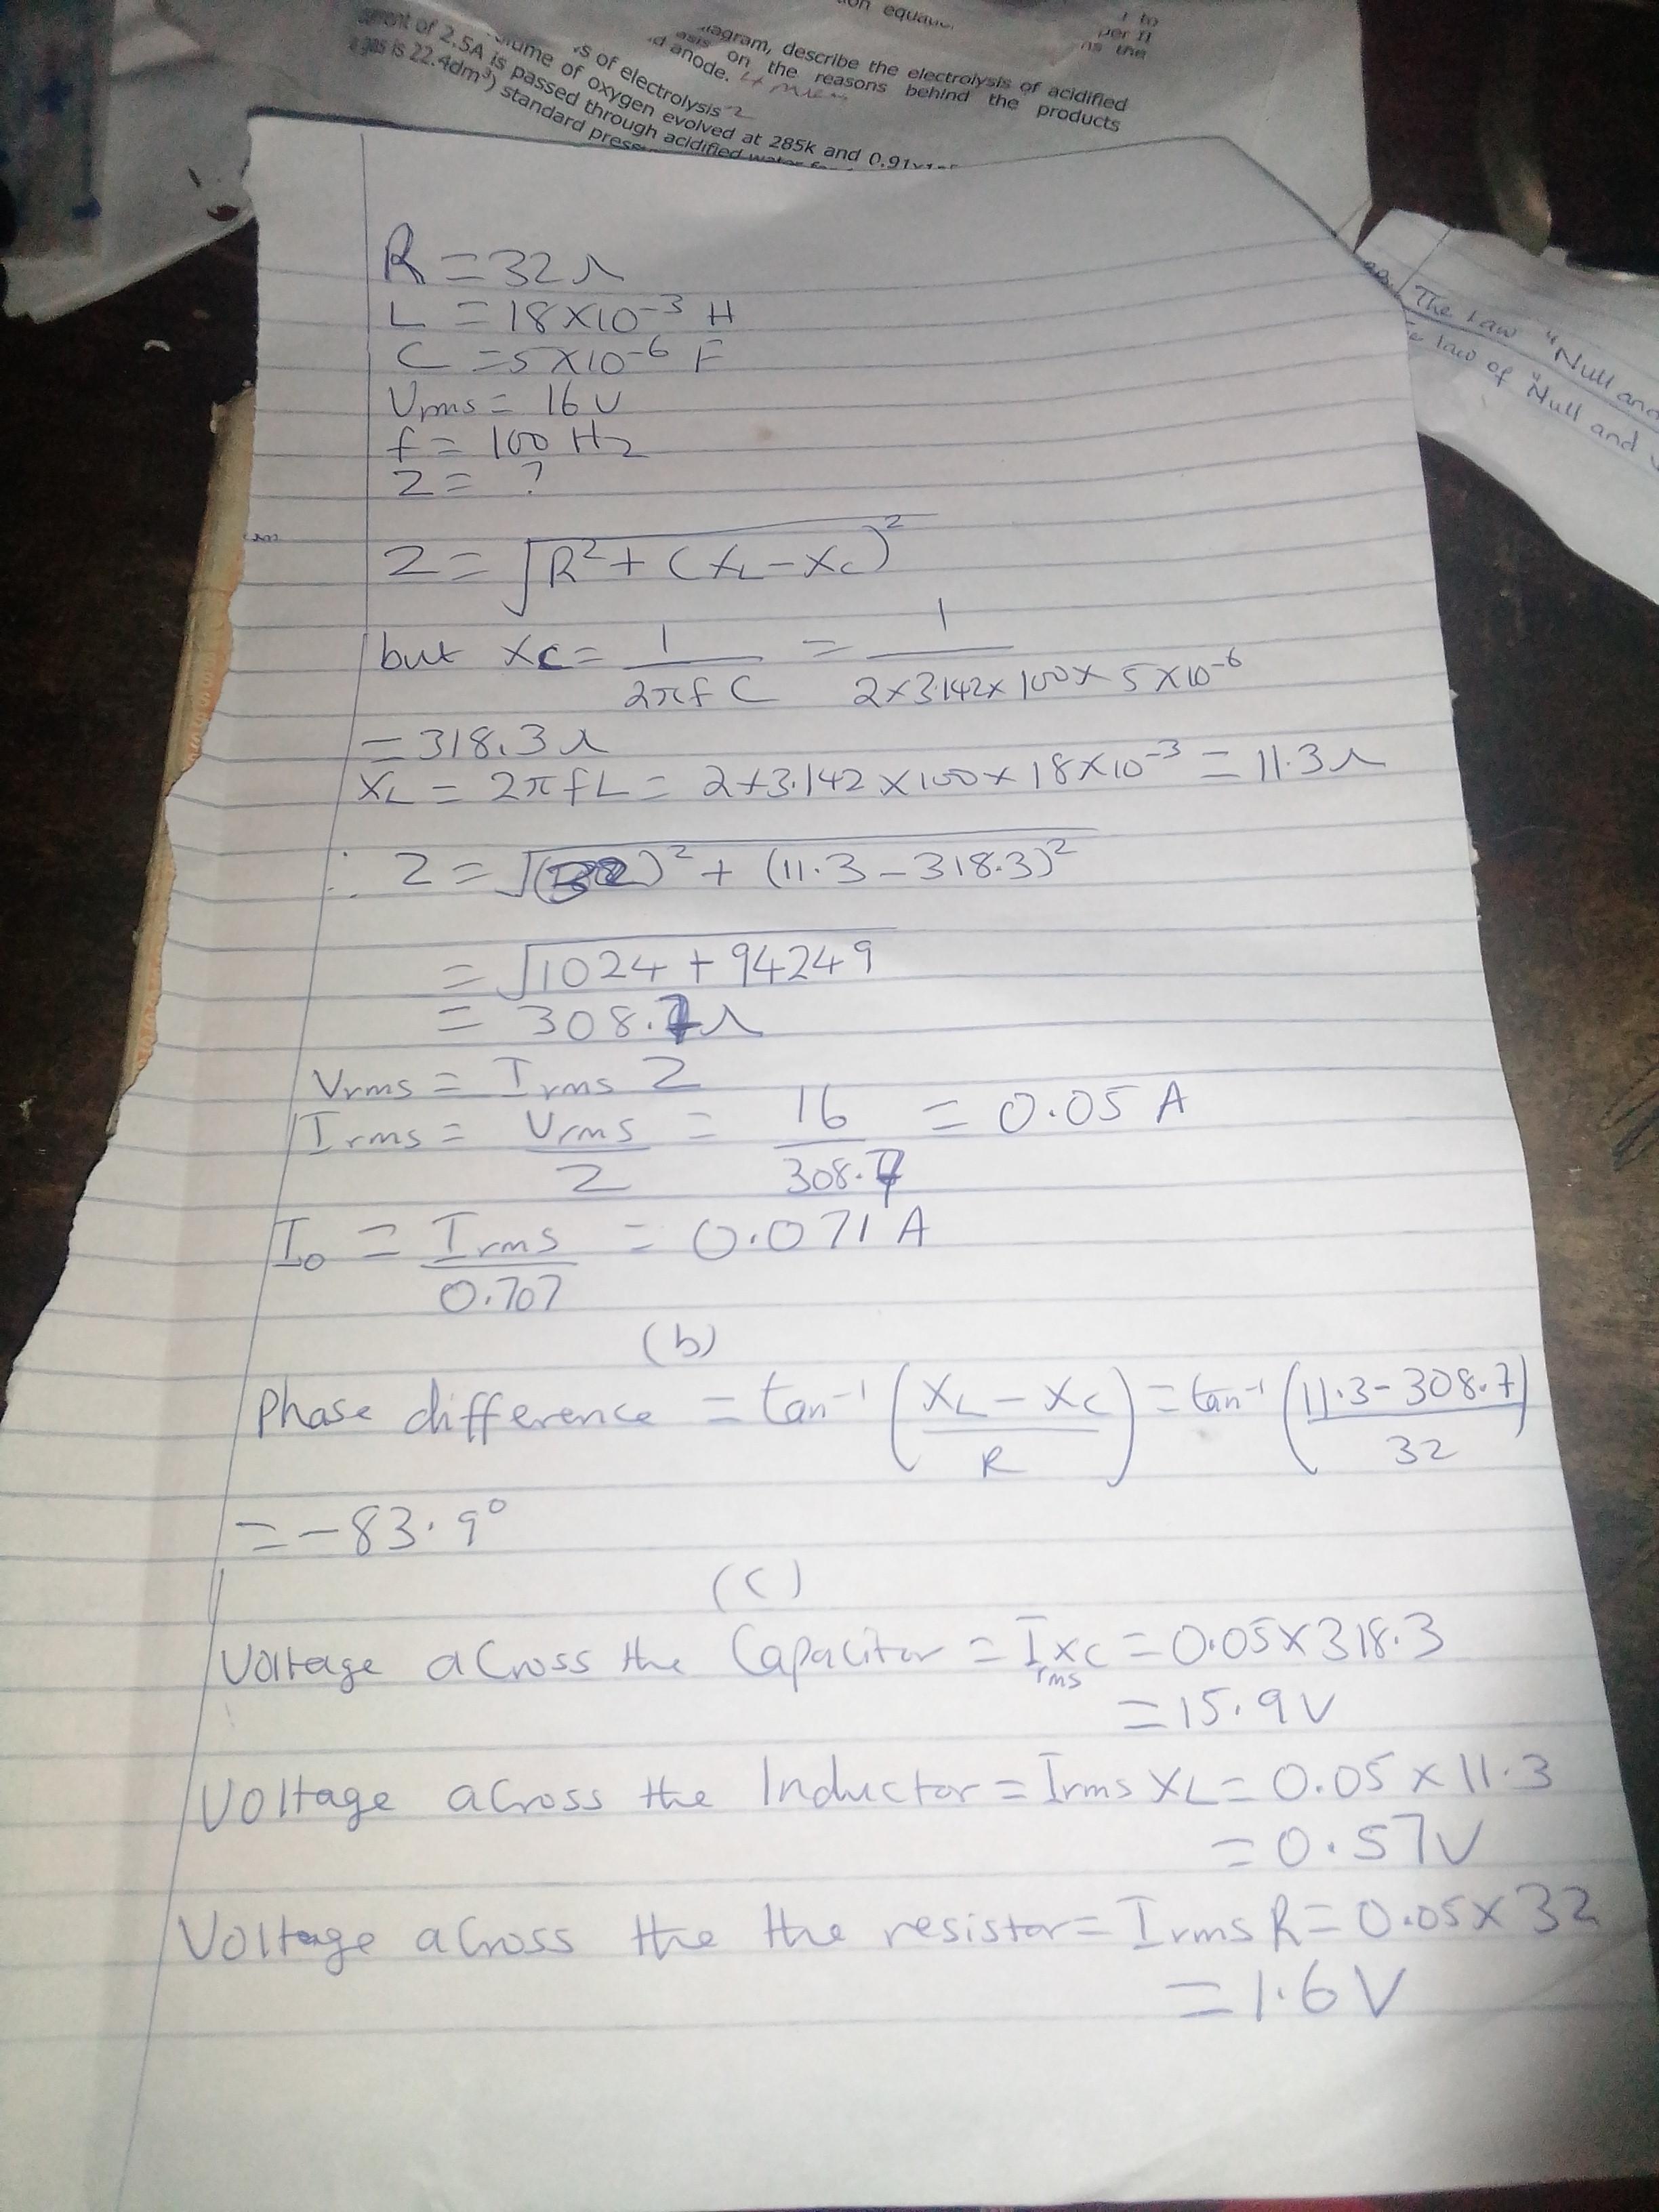 on
to
per
ns the
diagram, describe the electrolysis of acidified
on the reasons behind the products
d anode.
s of electrolysis 2
volume of oxygen evolved at 285k and 0.91x
of 2.5A is passed through acidified water
gas is 22.4dm³) standard
R = 32Ω
L = 18×10⁻³ H
C = 5×10⁻⁶ F
Vrms = 16V
f = 100 Hz
Z = ?
Z = √R² + (XL - Xc)²
but Xc = 1/2πfC = 1/2×3.142×100×5×10⁻⁶
= 318.3Ω
XL = 2πfL = 2×3.142×100×18×10⁻³ = 11.3Ω
∴ Z = √(32)² + (11.3 - 318.3)²
= √1024 + 94249
= 308.7Ω
Vrms = Irms Z
Irms = Vrms/Z = 16/308.7 = 0.05 A
I₀ = Irms/0.707 = 0.071 A
(b)
Phase difference = tan⁻¹(XL - Xc/R) = tan⁻¹(11.3 - 308.7/32)
= -83.9°
(c)
Voltage across the Capacitor = Irms Xc = 0.05×318.3
= 15.9V
Voltage across the Inductor = Irms XL = 0.05×11.3
= 0.57V
Voltage across the the resistor = Irms R = 0.05×32
= 1.6V
The Law "Null and
law of "Null and